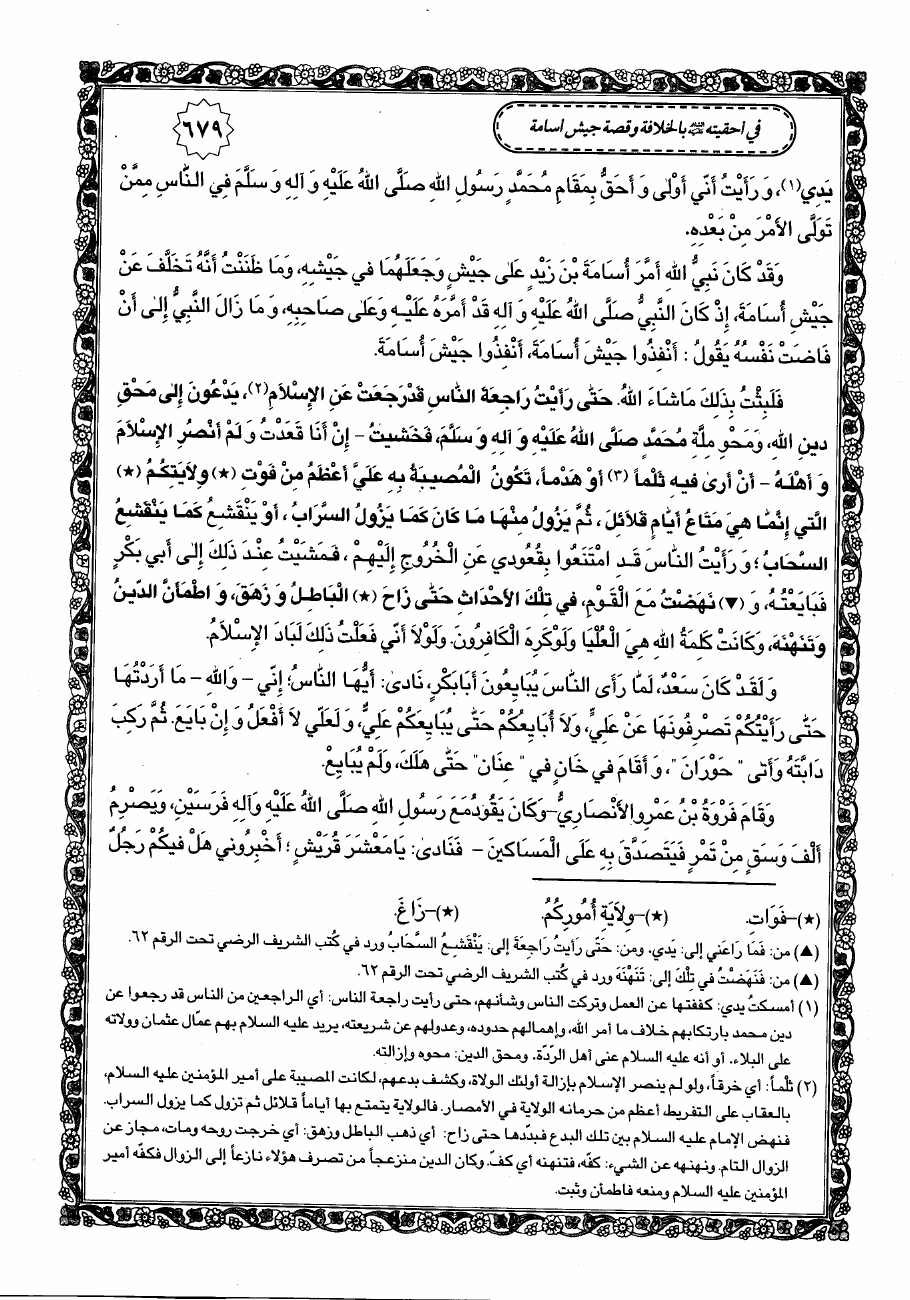 في أحقيته عليه السلام بالخلافة وقصة جيش اسامة
٦٧٩
يَدِي(١)، وَ رَأَيْتُ أَنّي أَوْلى وَ أَحَقُّ بِمَقَامِ مُحَمَّدٍ رَسُولِ اللهِ صَلَّى اللهُ عَلَيْهِ وَ آلِهِ وَ سَلَّمَ فِي النَّاسِ مِمَّنْ
تَوَلَّى الأَمْرَ مِنْ بَعْدِهِ.
وَقَدْ كَانَ نَبِيُّ اللهِ أَمَّرَ أُسَامَةَ بْنَ زَيْدٍ عَلى جَيْشٍ وَجَعَلَهُمَا في جَيْشِهِ، وَمَا ظَنَنْتُ أَنَّهُ تَخَلَّفَ عَنْ
جَيْشِ أُسَامَةَ، إِذْ كَانَ النَّبِيُّ صَلَّى اللهُ عَلَيْهِ وَ آلِهِ قَدْ أَمَّرَهُ عَلَيْهِ وَعَلى صَاحِبِهِ، وَ مَا زَالَ النَّبِيُّ إِلى أَنْ
فَاضَتْ نَفْسُهُ يَقُولُ : أَنْفِذُوا جَيْشَ أُسَامَةَ، أَنْفِذُوا جَيْشَ أُسَامَةَ.
فَلَبِثْتُ بِذَلِكَ مَاشَاءَ اللهُ. حَتّى رَأَيْتُ رَاجِعَةَ النَّاسِ قَدْرَجَعَتْ عَنِ الإِسْلاَمِ(٢)، يَدْعُونَ إِلى مَحْقِ
دينِ اللهِ، وَمَحْوِ مِلَّةِ مُحَمَّدٍ صَلَّى اللهُ عَلَيْهِ وَ آلِهِ وَ سَلَّمَ، فَخَشيتُ – إِنْ أَنَا قَعَدْتُ وَ لَمْ أَنْصُرِ الإِسْلاَمَ
وَ أَهْلَهُ – أَنْ أَرى فيهِ ثَلْماً (٣) أَوْ هَدْماً، تَكُونُ الْمُصيبَةُ بِهِ عَلَيَّ أَعْظَمَ مِنْ فَوْتِ (★) وِلاَيَتِكُمُ (★)
الَّتي إِنَّمَا هِيَ مَتَاعُ أَيَّامٍ قَلاَئِلَ ، ثُمَّ يَزُولُ مِنْهَا مَا كَانَ كَمَا يَزُولُ السَّرَابُ ، أَوْ يَنْقَشِعُ كَمَا يَنْقَشِعُ
السَّحَابُ ؛ وَ رَأَيْتُ النَّاسَ قَدِ امْتَنَعُوا بِقُعُودي عَنِ الْخُرُوجِ إِلَيْهِمْ ، فَمَشَيْتُ عِنْدَ ذَلِكَ إِلى أَبي بَكْرٍ
فَبَايَعْتُهُ، وَ (▼) نَهَضْتُ مَعَ الْقَوْمِ، في تِلْكَ الأَحْدَاثِ حَتّى زَاحَ (★) الْبَاطِلُ وَ زَهَقَ، وَ اطْمَأَنَّ الدّينُ
وَتَنَهْنَهَ، وَكَانَتْ كَلِمَةُ اللهِ هِيَ الْعُلْيَا وَلَوْكَرِهَ الْكَافِرُونَ. وَلَوْلاَ أَنّي فَعَلْتُ ذَلِكَ لَبَادَ الإِسْلاَمُ.
وَ لَقَدْ كَانَ سَعْدٌ، لَمَّا رَأَى النَّاسَ يُبَايِعُونَ أَبَابَكْرٍ، نَادى: أَيُّهَا النَّاسُ؛ إِنّي – وَاللهِ – مَا أَرَدْتُهَا
حَتّى رَأَيْتُكُمْ تَصْرِفُونَهَا عَنْ عَلِيٍّ، وَلاَ أُبَايِعُكُمْ حَتّى يُبَايِعَكُمْ عَلِيٌّ، وَ لَعَلّي لاَ أَفْعَلُ وَ إِنْ بَايَعَ. ثُمَّ رَكِبَ
دَابَّتَهُ وَأَتى " حَوْرَانَ "، وَ أَقَامَ في خَانٍ في " عِنَان" حَتّى هَلَكَ، وَلَمْ يُبَايِعْ.
وَقَامَ فَرْوَةُ بْنُ عَمْرٍو الأَنْصَارِيُّ–وَكَانَ يَقُودُمَعَ رَسُولِ اللهِ صَلَّى اللهُ عَلَيْهِ وَآلِهِ فَرَسَيْنِ، وَيَصْرِمُ
أَلْفَ وَسَقٍ مِنْ تَمْرٍ فَيَتَصَدَّقَ بِهِ عَلَى الْمَسَاكينَ – فَنَادى: يَامَعْشَرَ قُرَيْشٍ ؛ أَخْبِرُوني هَلْ فيكُمْ رَجُلٌ
(★)–فَوَات. (★)–وِلاَيَةِ أُمُورِكُمُ. (★)–زَاغَ.
(▲) من: فَمَا رَاعَني إلى: يَدي. ومن: حَتّى رَأَيْتُ رَاجِعَةَ إلى: يَنْقَشِعُ السَّحَابُ ورد في كتب الشريف الرضي تحت الرقم ٦٢.
(▲) من: فَنَهَضْتُ في تِلْكَ إلى: تَنَهْنَهَ ورد في كُتب الشريف الرضي تحت الرقم ٦٢.
(١) أمسكتُ يدي: كففتها عن العمل وتركت الناس وشأنهم، حتى رأيت راجعة الناس: أي الراجعين من الناس قد رجعوا عن
دين محمد بارتكابهم خلاف ما أمر الله، وإهمالهم حدوده، وعدولهم عن شريعته، يريد عليه السلام بهم عمّال عثمان وولاته
على البلاء. أو أنه عليه السلام عنى أهل الرّدّة. ومحق الدين: محوه وإزالته.
(٢) ثلْماً: أي خرقاً، ولو لم ينصر الإسلام بإزالة أولئك الولاة، وكشف بدعهم، لكانت المصيبة على أمير المؤمنين عليه السلام،
بالعقاب على التفريط، أعظم من حرمانه الولاية في الأمصار. فالولاية يتمتع بها أياماً قلائل ثم تزول كما يزول السراب.
فنهض الإمام عليه السلام بين تلك البدع فبدّدها حتى زاح: أي ذهب الباطل وزهق: أي خرجت روحه ومات، مجاز عن
الزوال التام. ونهنهه عن الشيء: كفّه، فتنهنه أي كفّ. وكان الدين منزعجاً من تصرف هؤلاء نازعاً إلى الزوال فكفّه أمير
المؤمنين عليه السلام ومنعه فاطمأن وثبت.